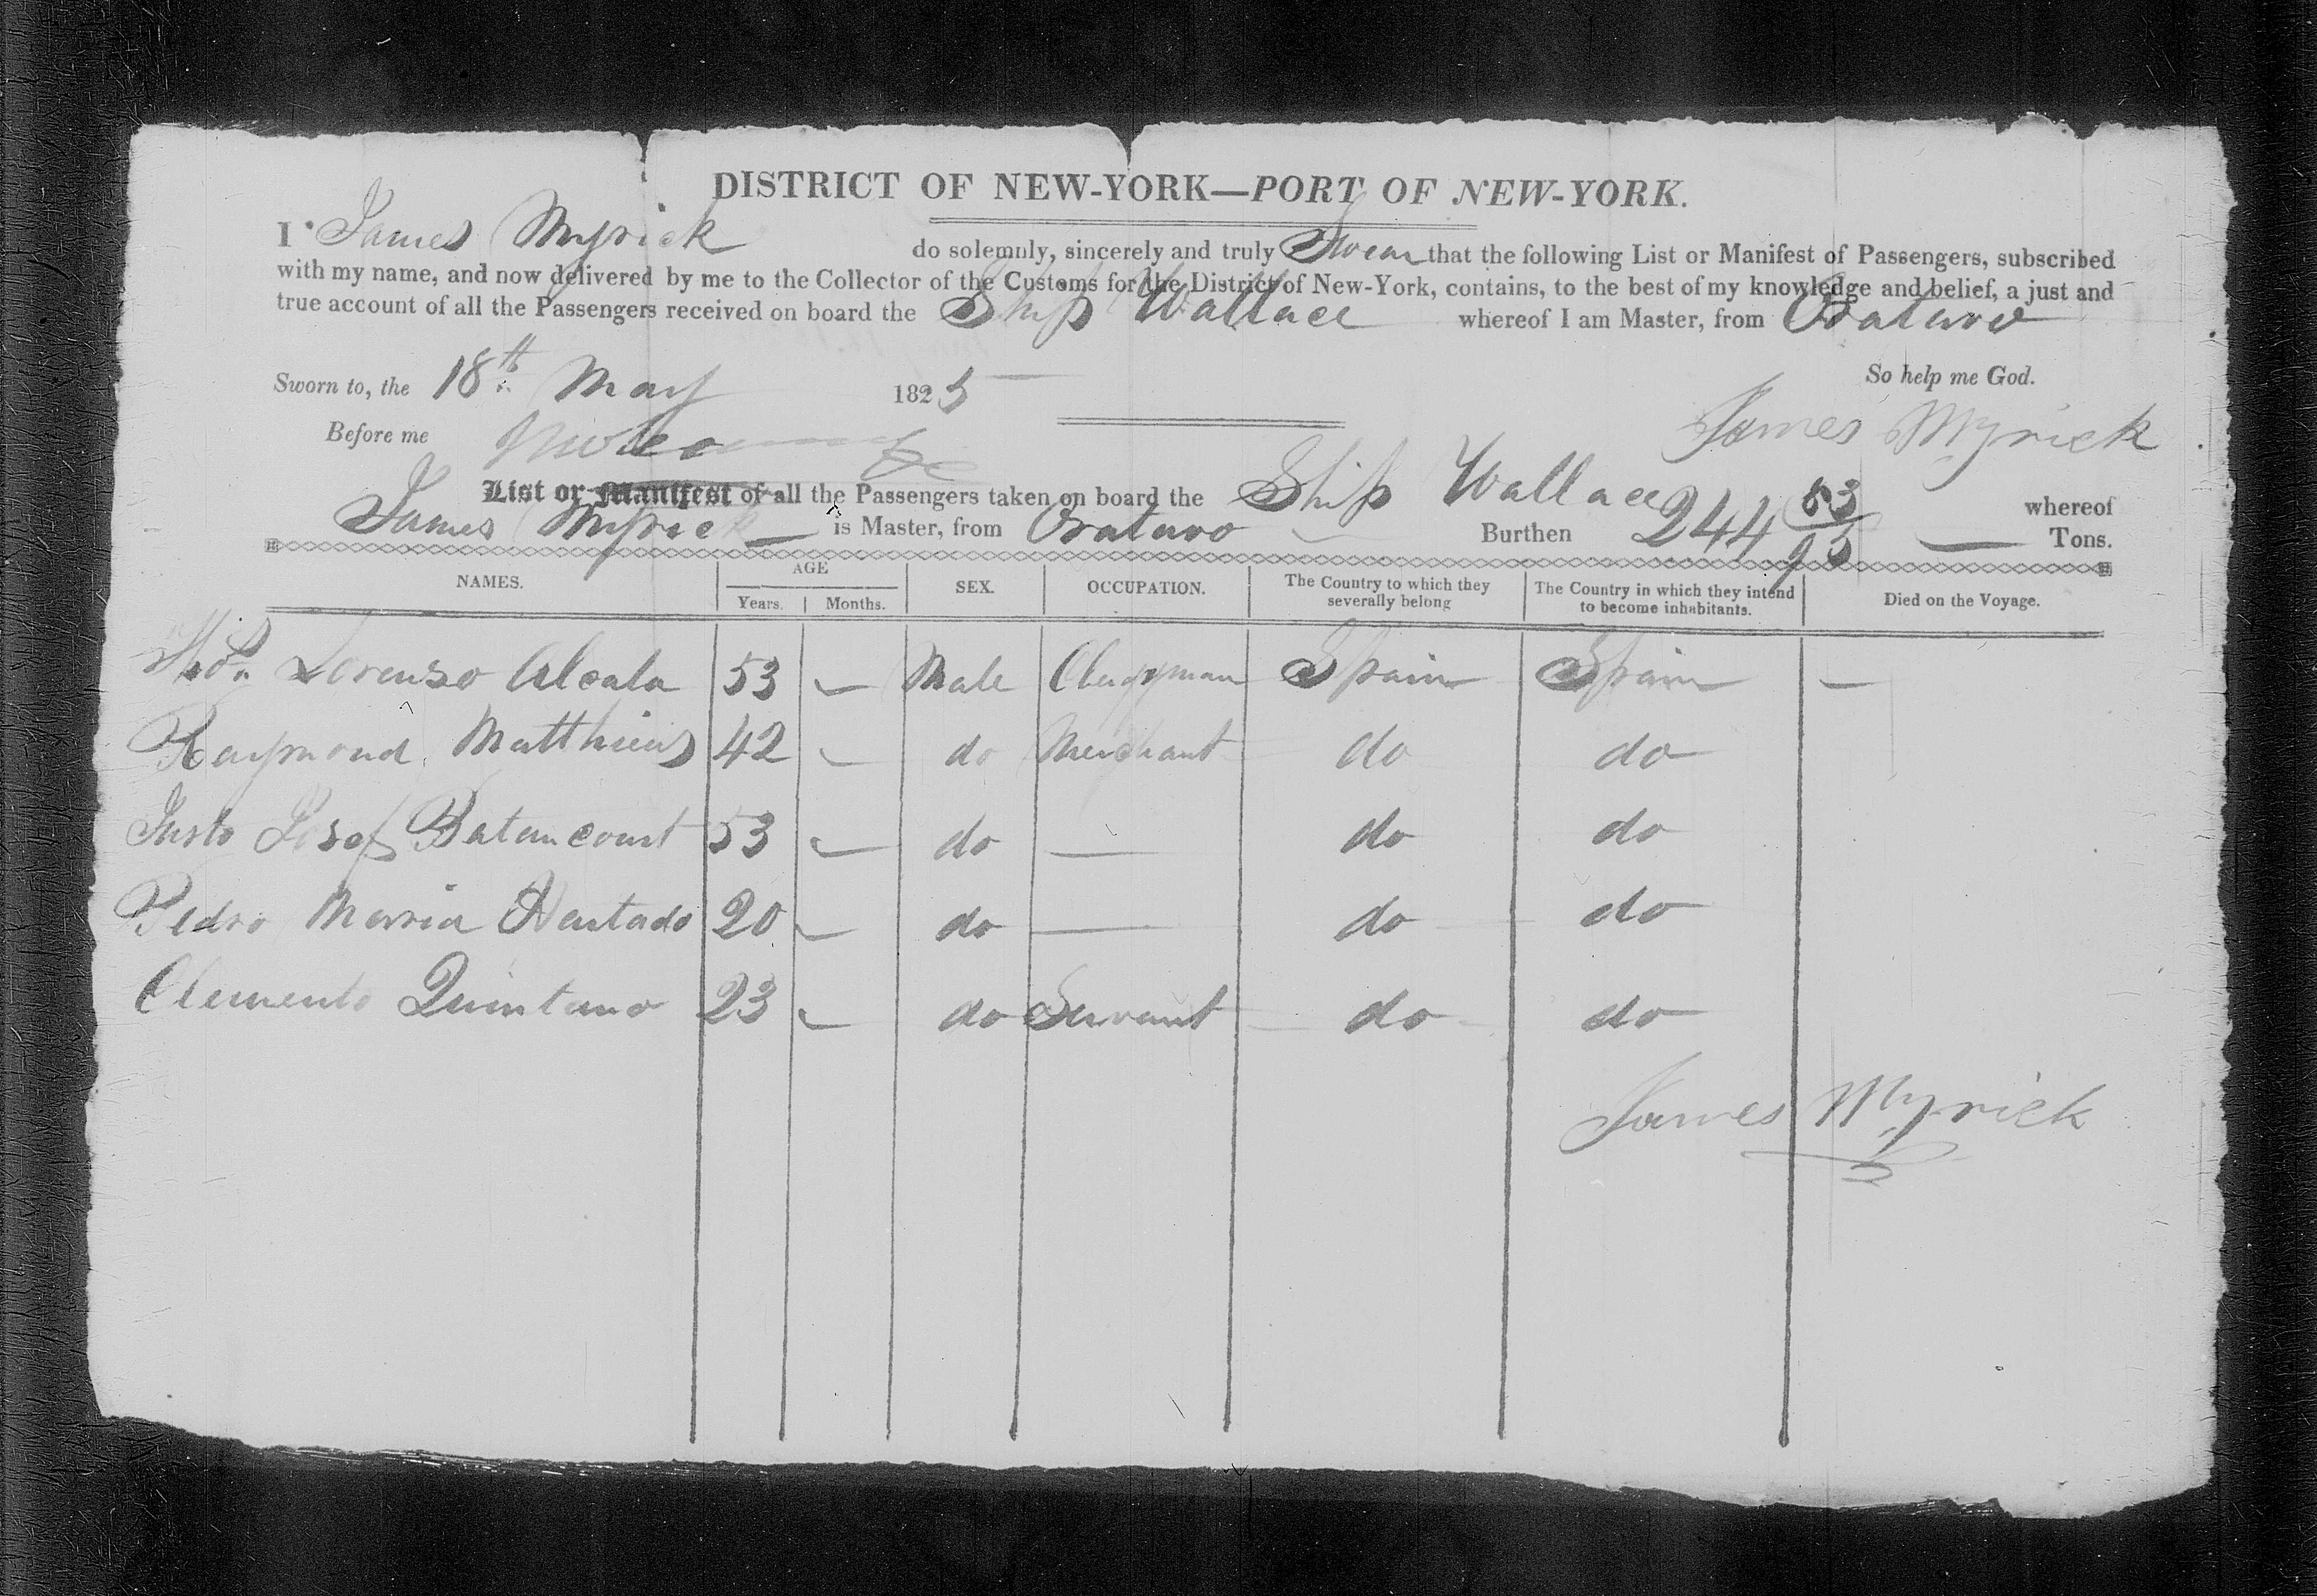 DISTRICT OF NEW-YORK—PORT OF NEW-YORK.
I James Myrick do solemnly, sincerely and truly Swear that the following List or Manifest of Passengers, subscribed
with my name, and now delivered by me to the Collector of the Customs for the District of New-York, contains, to the best of my knowledge and belief, a just and
true account of all the Passengers received on board the Ship Wallace whereof I am Master, from Oratavo
So help me God.
Sworn to, the 18th May 1825
James Myrick
Before me
List or Manifest of all the Passengers taken on board the Ship Wallace whereof
James Myrick is Master, from Oratavo Burthen 244 83/95 Tons.
NAMES. AGE SEX. OCCUPATION. The Country to which they severally belong The Country in which they intend to become inhabitants. Died on the Voyage.
Years. Months.
Lorenzo Alcala 53 — Male Clergyman Spain Spain —
Raymond Matthias 42 — do Merchant do do
Justo Josef Batancourt 53 — do — do do
Pedro Maria Hurtado 20 — do — do do
Clemento Quintano 23 — do Servant do do
James Myrick